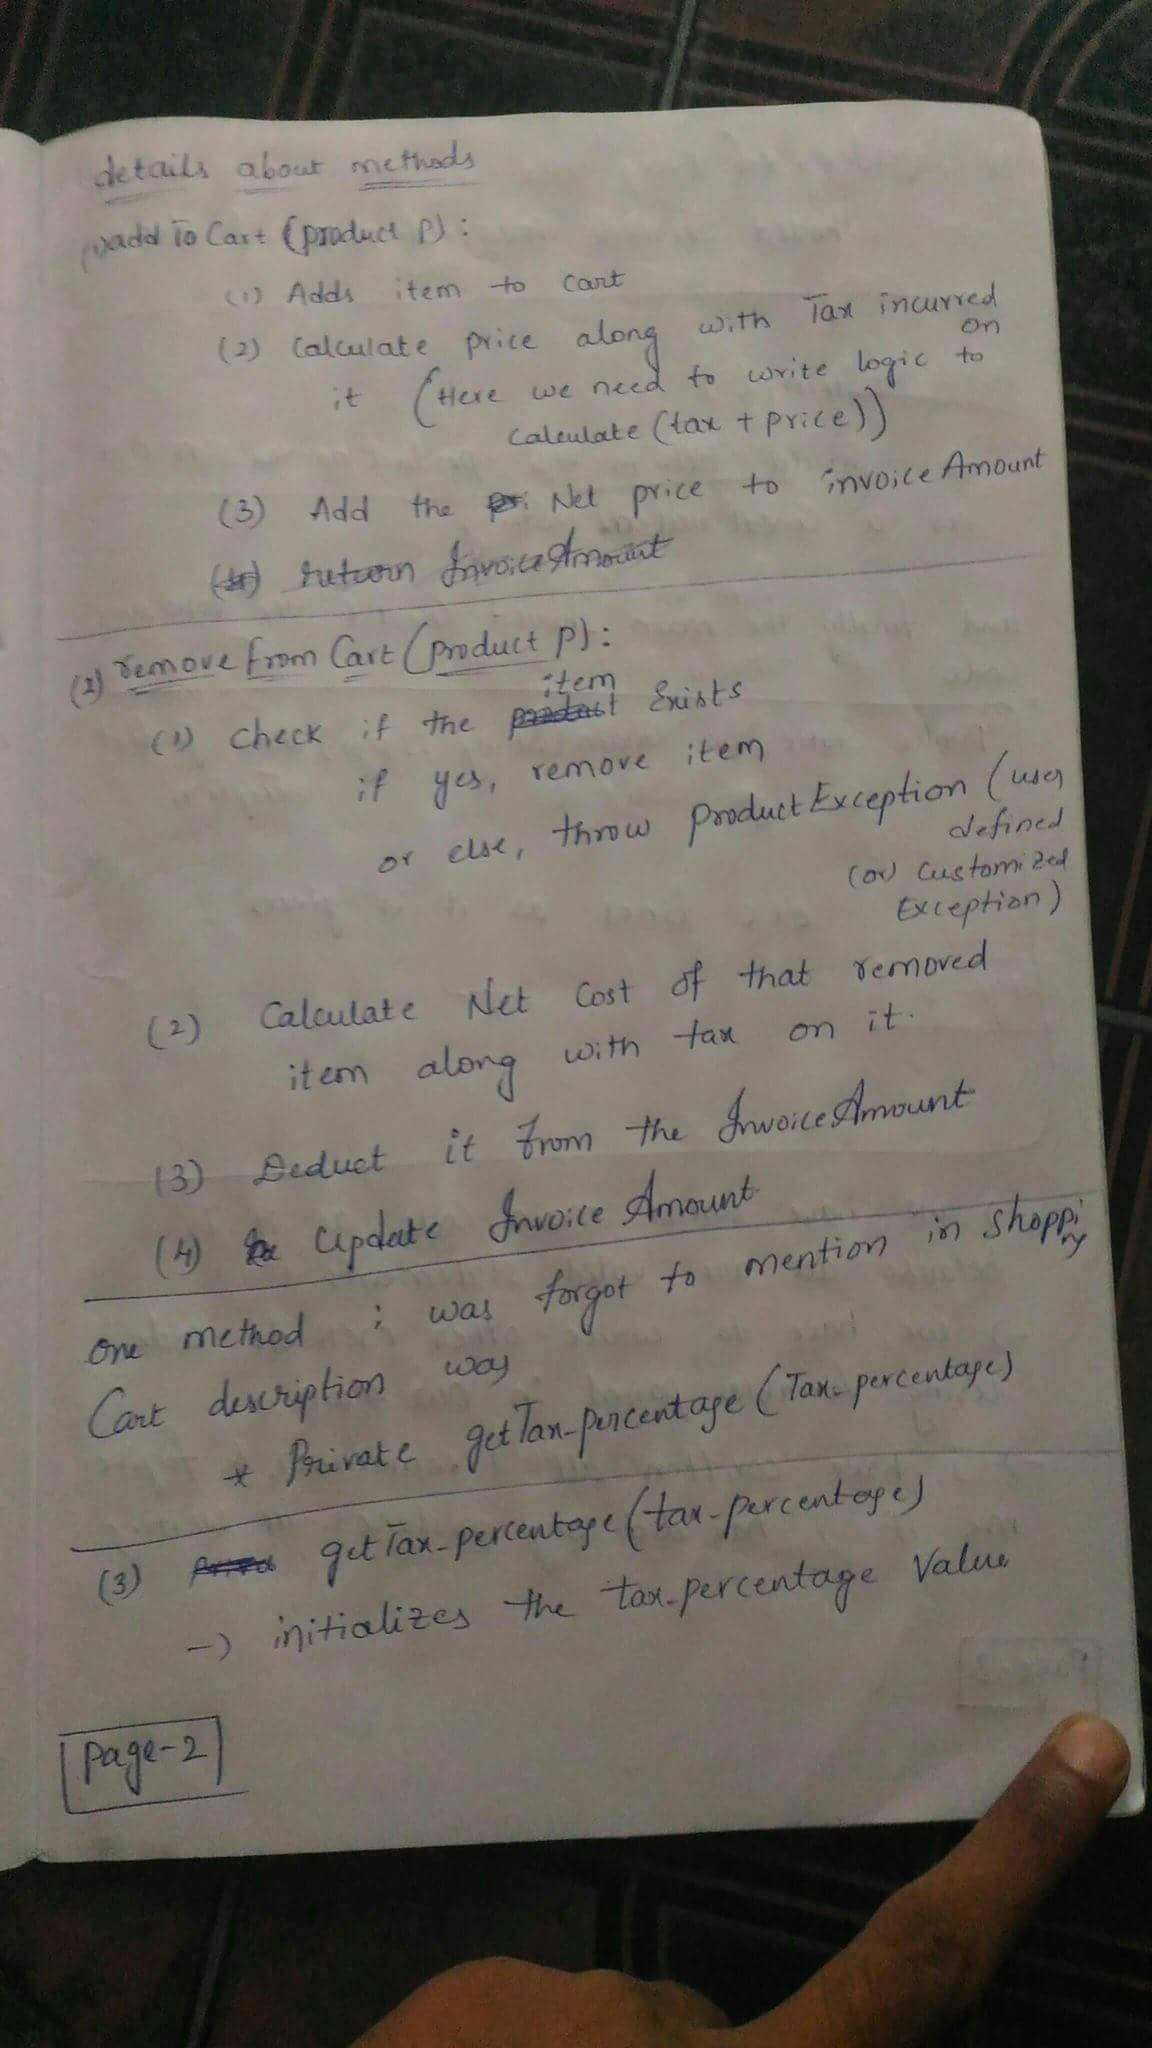 details about methods
1) add To Cart (product P):
(1) Adds item to cart
(2) Calculate price along with Tax incurred on
it (Here we need to write logic to
calculate (tax + price))
(3) Add the pri Net price to invoice Amount
(4) return Invoice Amount
(2) remove from Cart (product P):
item
(1) check if the product Exists
if yes, remove item
or else, throw product Exception (user
defined
(or) customized
Exception)
(2) Calculate Net Cost of that removed
item along with tax on it.
(3) Deduct it from the Invoice Amount
(4) Update Invoice Amount
one method : was forgot to mention in shopping
Cart description was
* Private getTax-percentage (Tax-percentage)
(3) getTax-percentage (tax-percentage)
-> initializes the tax-percentage Value
Page-2